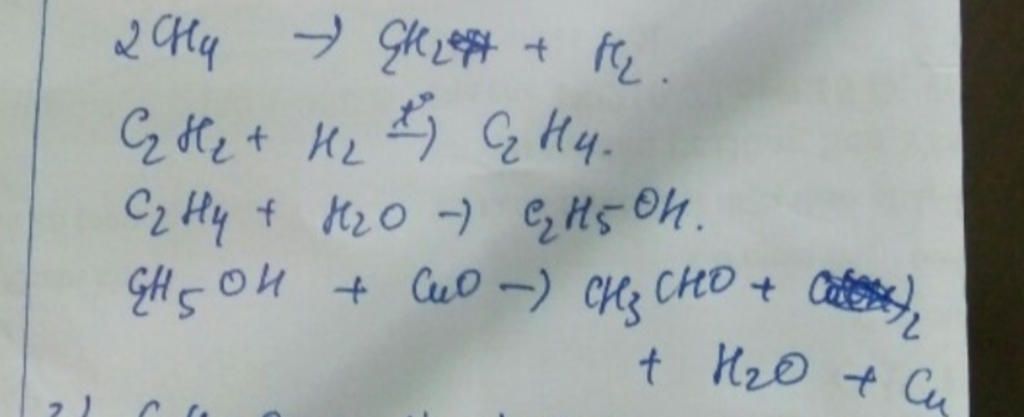 2CH4 → C2H2 + H2.
C2H2 + H2 t°→ C2H4.
C2H4 + H2O → C2H5OH.
C2H5OH + CuO → CH3CHO +
+ H2O + Cu